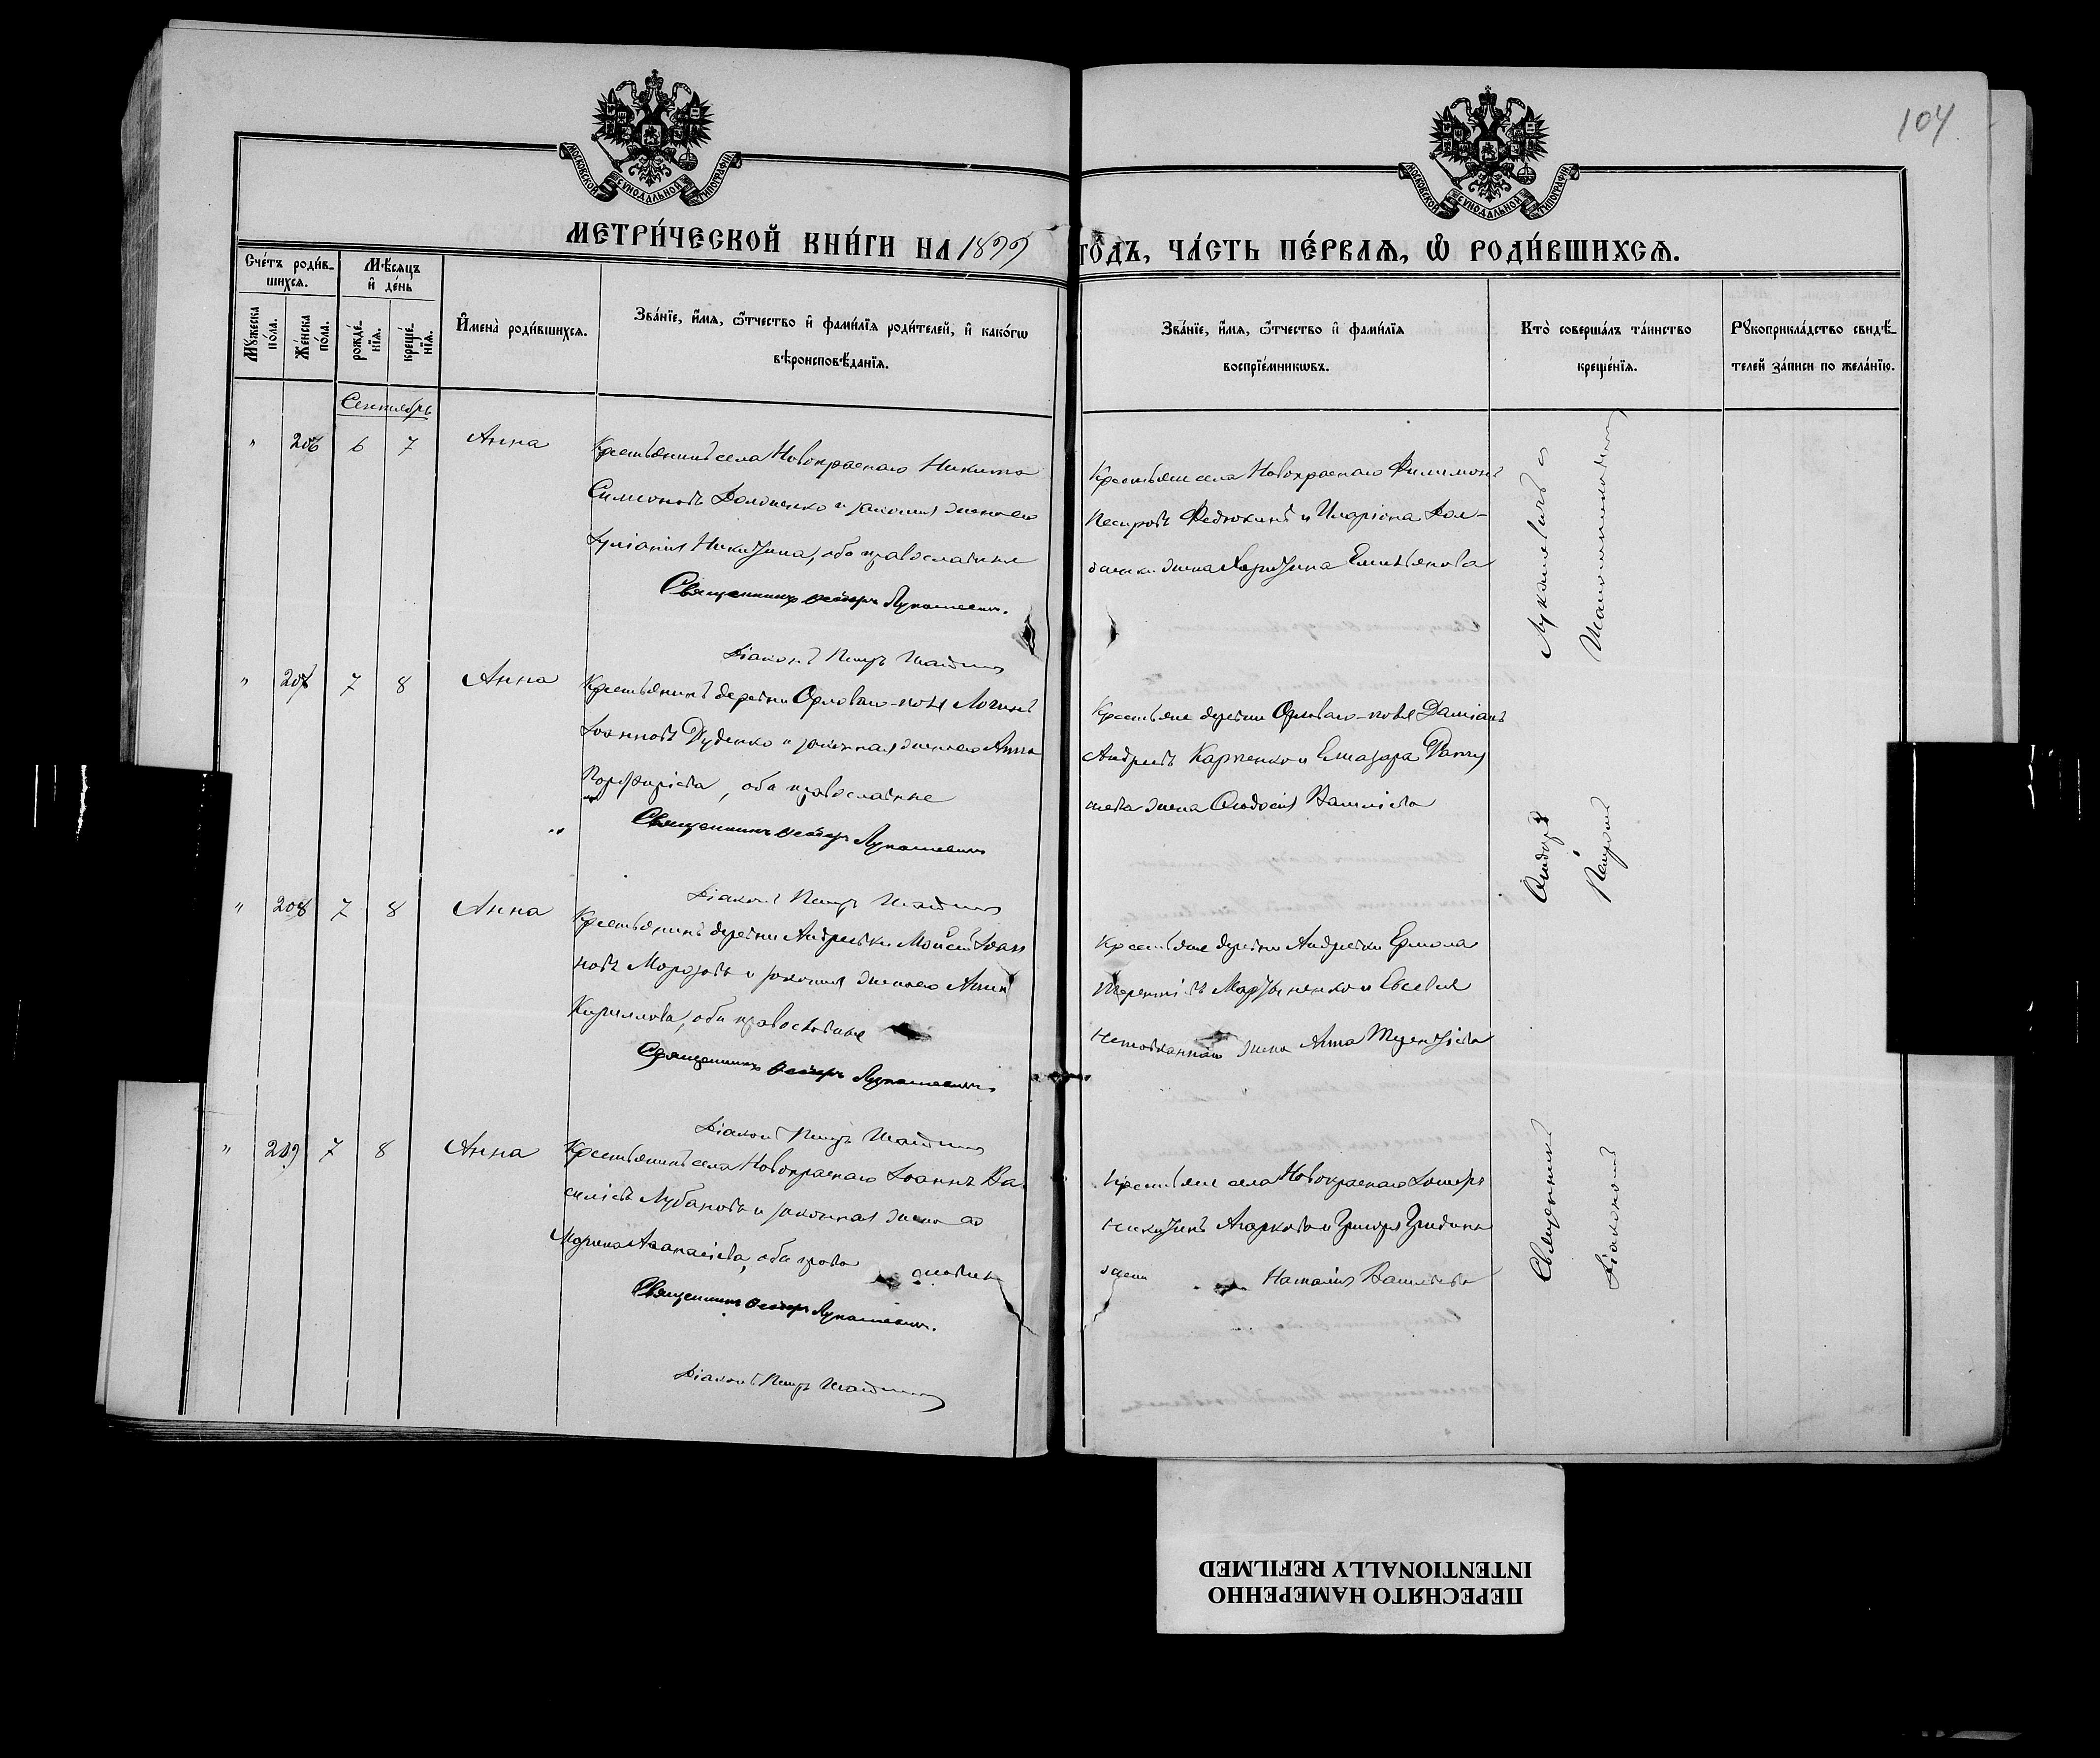 104
МОСКОВСКОЙ СУНОДАЛЬНОЙ ТИПОГРАФІИ
МОСКОВСКОЙ СУНОДАЛЬНОЙ ТИПОГРАФІИ
МЕТРИ́ЧЕСКОЙ КНИ́ГИ НА 1899 ГО́ДЪ, ЧА́СТЬ ПЕ́РВАЯ, Ѿ РОДИ́ВШИХСЯ.
Сче́тъ роди́вшихся.
Му́жеска по́ла.
Же́нска по́ла.
Мѣ́сяцъ и҆ де́нь
рожде́нїя.
креще́нїя.
И҆мена̀ роди́вшихся.
Зва́нїе, и҆́мя, ѻ҆́тчество и҆ фами́лїя роди́телей, и҆ како́гѡ
вѣроисповѣ́данїя.
Зва́нїе, и҆́мя, ѻ҆́тчество и҆ фами́лїя
воспрїе́мникѡвъ.
Кто̀ соверша́лъ та́инство
креще́нїя.
Рꙋкоприкла́дство свидѣ́-
телей за́писи по жела́нїю.
Сентябрь
" 206 6 7 Анна
Крестьянинъ села Новокраснаго Никита
Симеоновъ Долженко и законная жена его
Іуліанія Никитина, оба православные
Священникъ Ѳеодоръ Лукашевичъ.
Діаконъ Петръ
Крестьяне села Новокраснаго Филимонъ
Петровъ Федюкинъ и Иларіона Дол-
женки жена Харитина Емельянова
" 207 7 8 Анна
Крестьянинъ деревни Орловало-поля Логинъ
Іоанновъ Дуденко и законная жена его Анна
Порфиріева, оба православные
Священникъ Ѳеодоръ Лукашевичъ
Діаконъ Петръ
Крестьяне деревни Орловало-поля Даміанъ
Андреевъ Карпенко и Елиазара
жена Ѳеодосія Василіева
" 208 7 8 Анна
Крестьянинъ деревни Андреевки Моисей Іоан
новъ Морозовъ и законная жена его Анна
Кириллова, оба православные
Священникъ Ѳеодоръ Лукашевичъ
Діаконъ Петръ
Крестьяне деревни Андреевки Ермолай
Терентіевъ Мартыненко и Евсевія
жена Анна Терентіева
" 209 7 8 Анна
Крестьянинъ села Новокраснаго Іоаннъ Ва
силіевъ Лубановъ и законная жена его
Марина Аѳанасіева, оба православные
Священникъ Ѳеодоръ Лукашевичъ.
Діаконъ Петръ
Крестьяне села Новокраснаго
Никитинъ Агарковъ и
жена Наталія Василіева
Священникъ Ѳеодоръ Лукашевичъ и
Діаконъ Петръ
ПЕРЕСНЯТО НАМЕРЕННО
INTENTIONALLY REFILMED